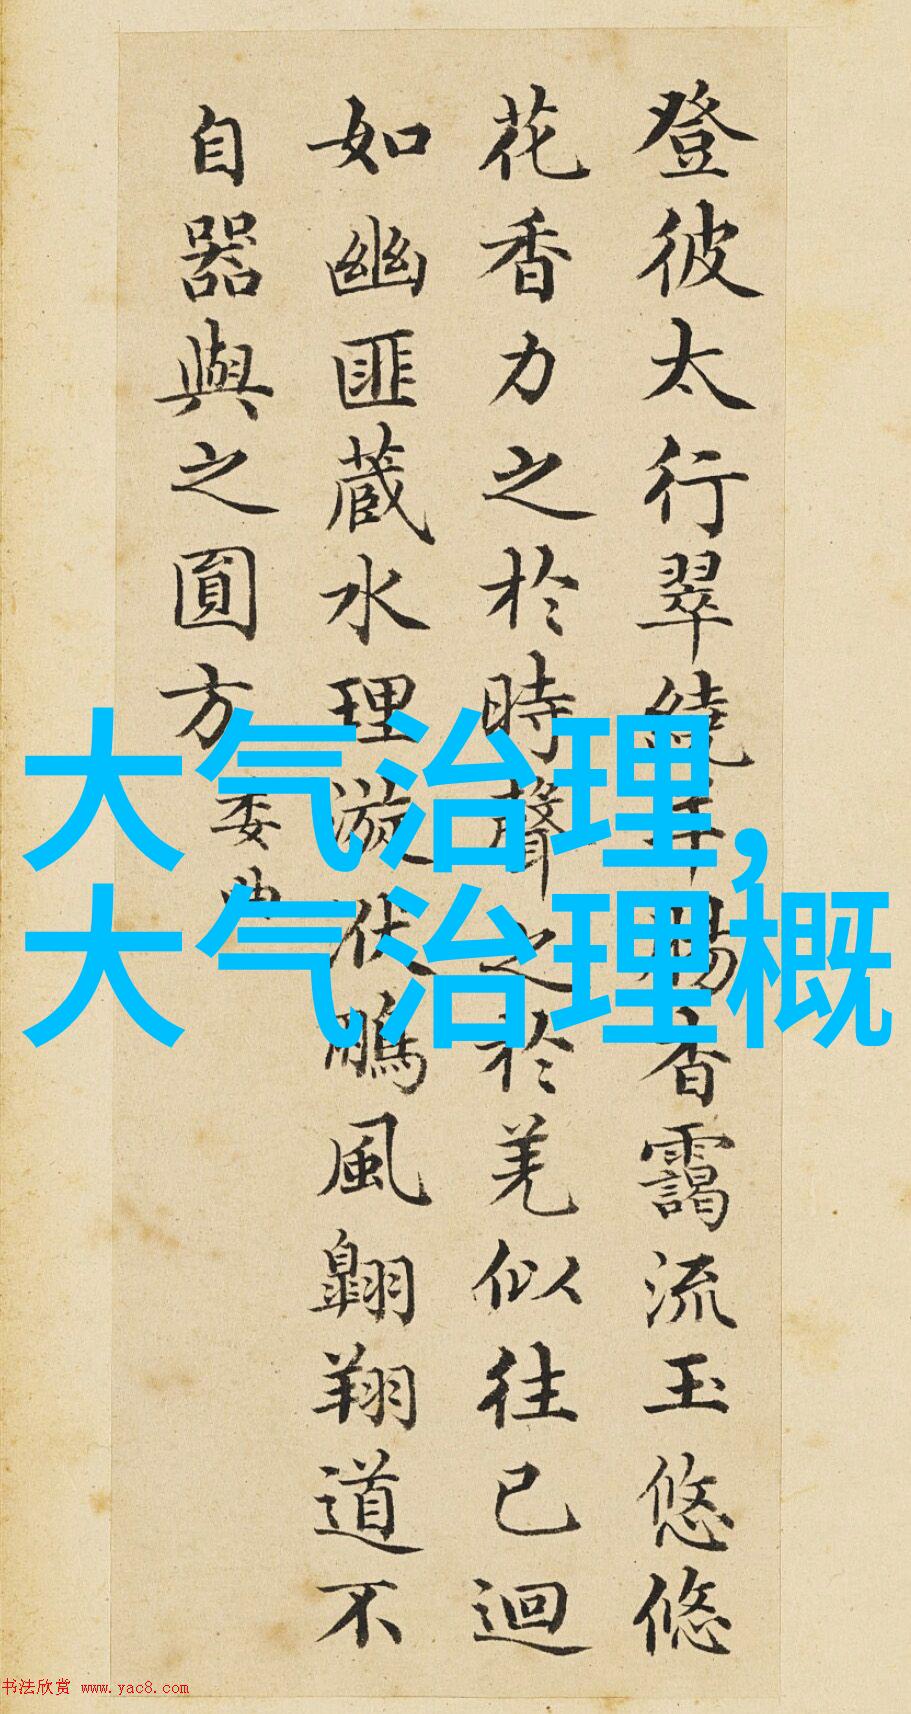 登彼太行翠繞羊腸杳靄流玉悠悠
花香力之於時聲之於羌似往已迴
如幽匪蔵水理漩伏鵬風翱翔道不
自器與之圓方
委曲
大气治理,
大气治理概
书法欣赏 www.yac8.com